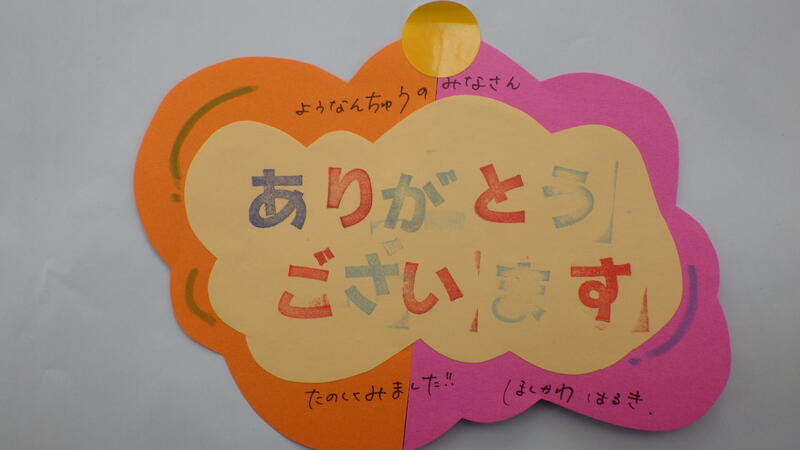 ようなんちゅうのみなさん
ありがとう
ございます
たのしみました!! ほしかわ はるき.